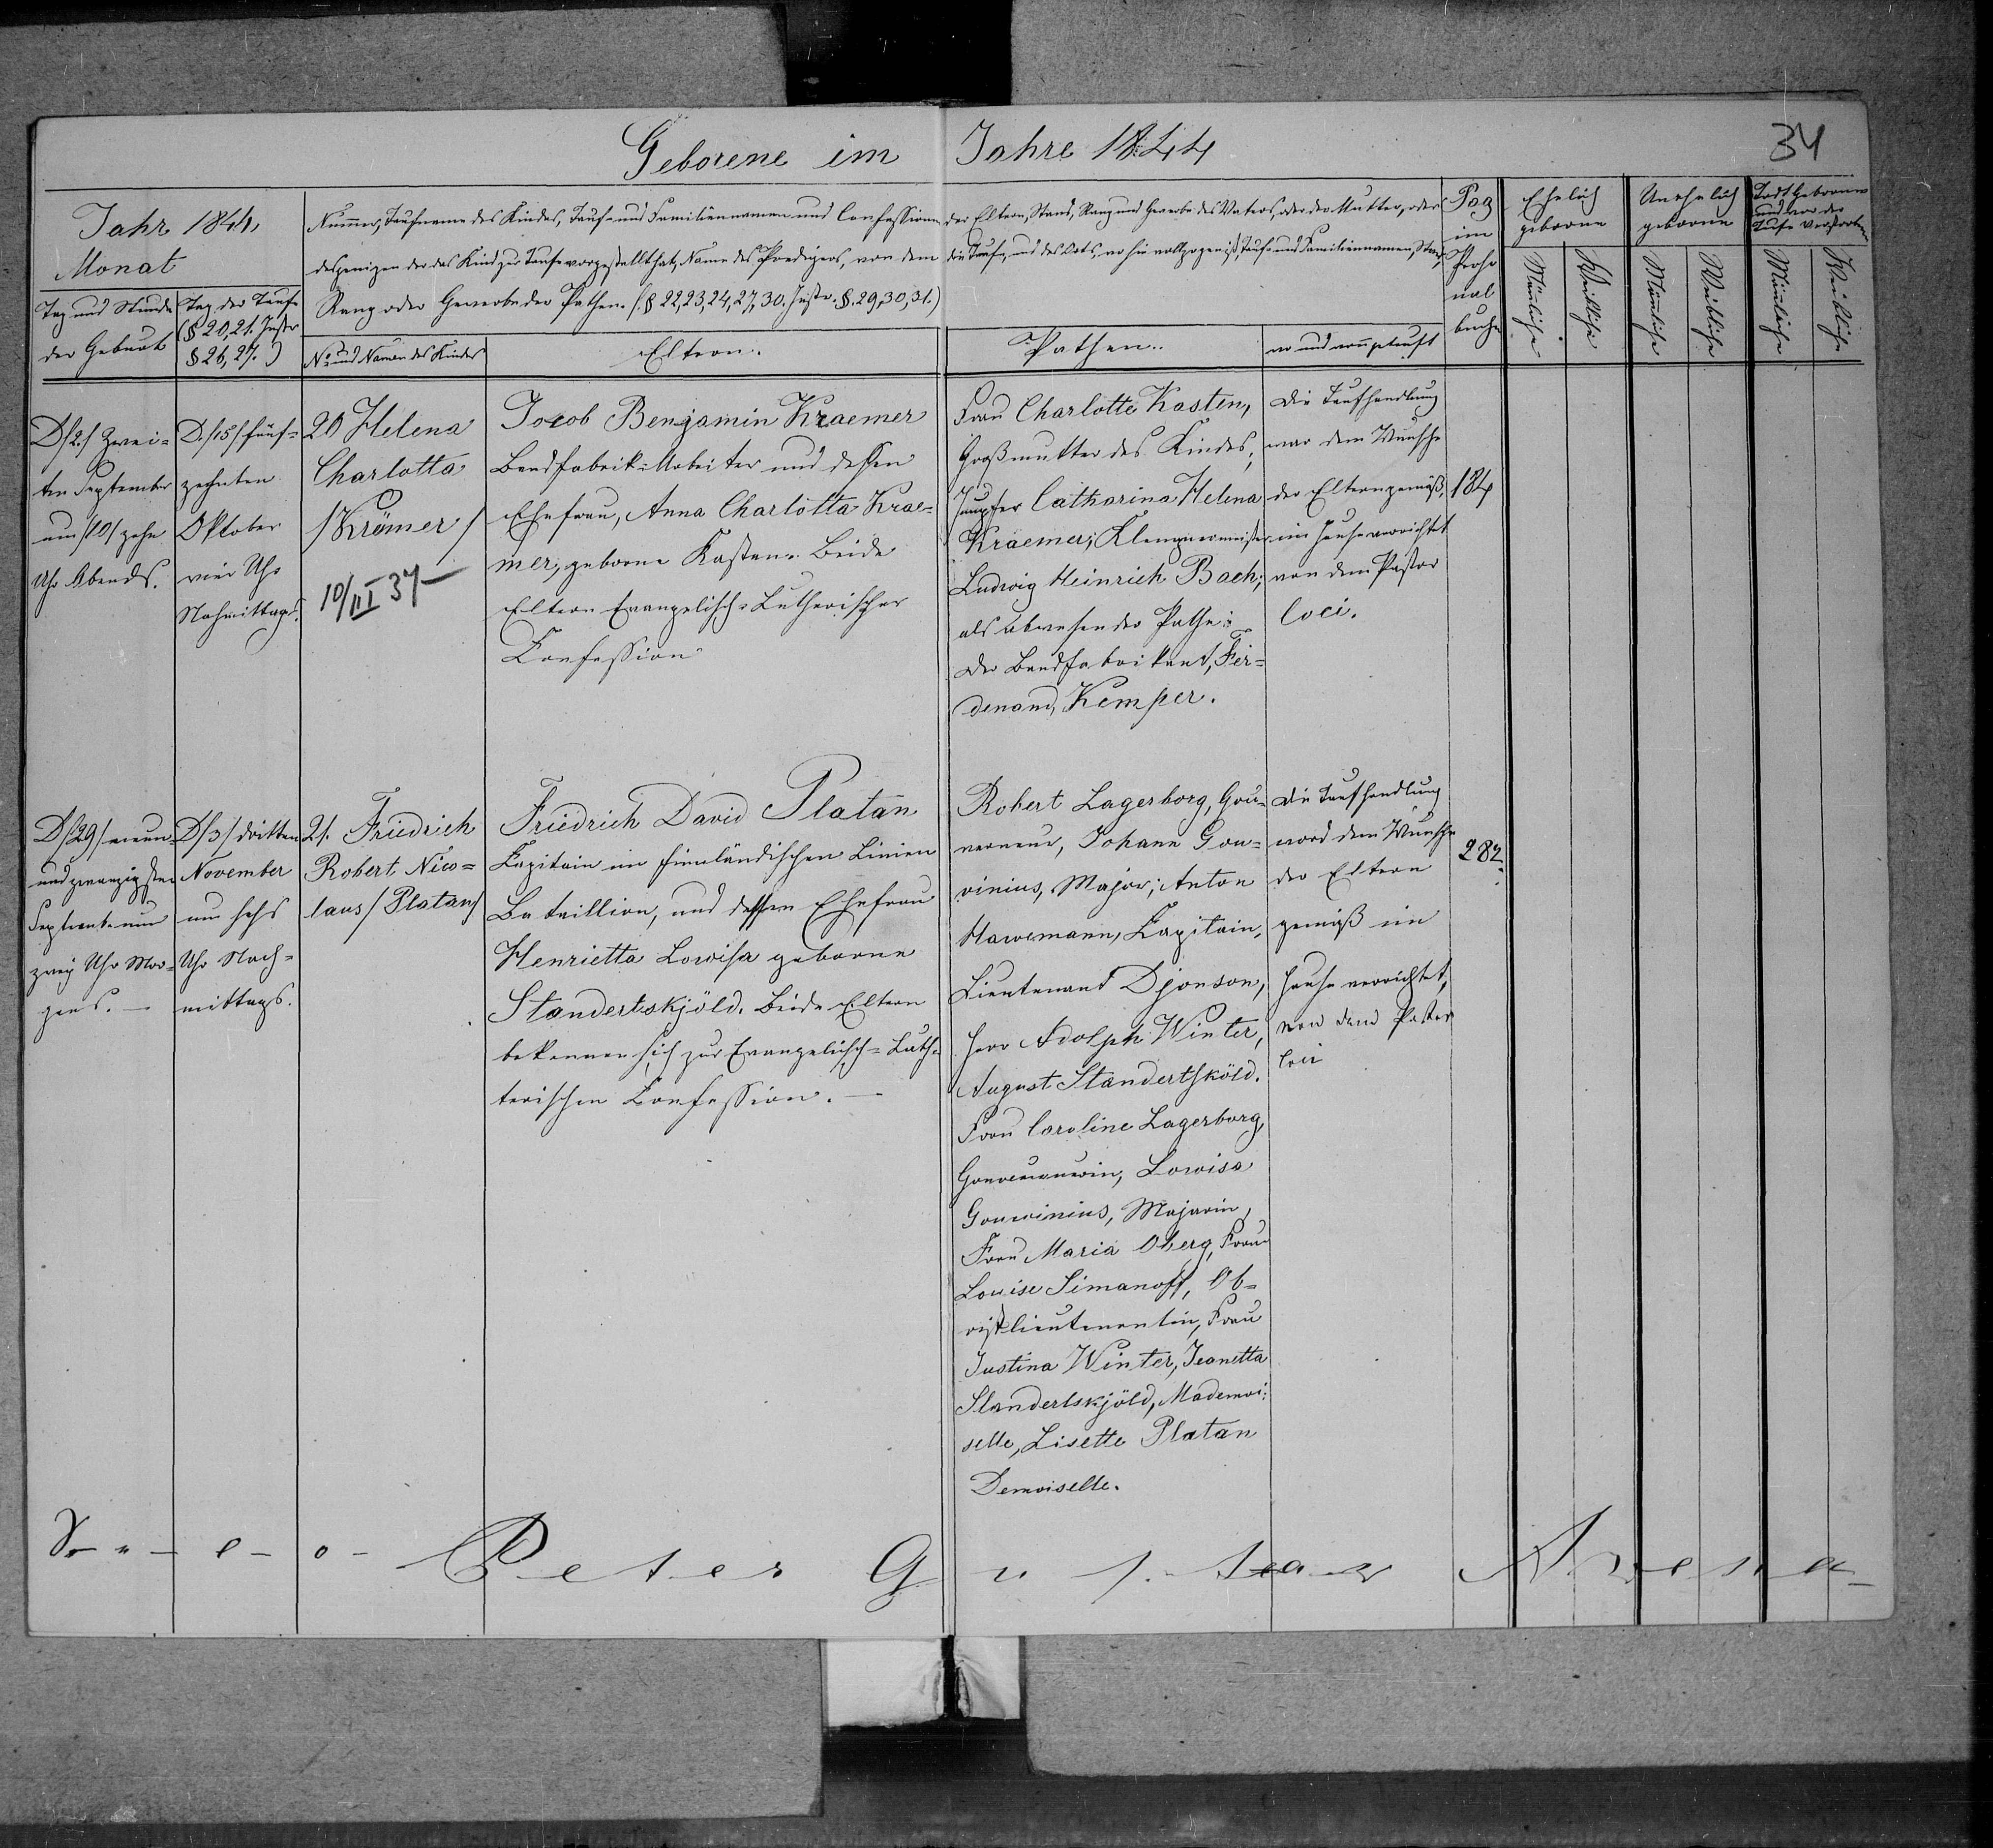 Geborene im Jahre 1844
34
Jahr 1844,
Monat
Tag und Stunde
der Geburt
Tag der Taufe
(§ 20, 21. Instr.
§ 26, 27.)
Nummer, Taufname des Kindes, Tauf- und Familiennamen und Confession der Eltern, Stand, Rang und Gewerbe des Vaters, oder der Mutter, oder
desjenigen der das Kind zur Taufe vorgestellt hat, Name des Predigers, von dem die Taufe, und des Orts, wo sie vollzogen ist, Tauf- und Familiennamen, Stand,
Rang oder Gewerbe der Pathen. (§ 22, 23, 24, 27, 30. Instr. §. 29, 30, 31.)
No und Namen des Kindes
Eltern.
Pathen.
wo und von getauft
Pag
im
Perso
nal
buche
Ehelich
geborne
Unehelich
geborne
Todt Geborene
und vor der
Taufe verstorben
Männliche
Weibliche
Männliche
Weibliche
Männliche
Weibliche
D/2./ Zwei-
ten September
um /10/ zehn
Uhr Abends.
D./15/ fünf-
zehnten
Oktober
vier Uhr
Nachmittags.
20 Helena
Charlotta
/Krömer/
10/III 37
Jocob Benjamin Kraemer
Bandfabrik-Arbeiter und dessen
Ehefrau, Anna Charlotta Krae-
mer, geborne Kasten. Beide
Eltern Evangelisch-Lutherischer
Confession
Frau Charlotte Kasten,
Großmutter des Kindes,
Jungfer Catharina Helena
Kraemer; Klempnermeister
Ludwig Heinrich Bach;
als abwesender Pathe:
Der Bandfabrikant, Fer-
denand, Kemper.
Die Taufhandlung
war dem Wunsche
der Eltern gemäß,
im Hause verrichtet
von dem Pastor
loci.
184
D/29/ neun-
und zwanzigsten
September um
zwey Uhr Mor-
gens. —
D/3/ dritten
November
um sechs
Uhr Nach-
mittags.
21. Friedrich
Robert Nico-
laus /Platan/
Friedrich David Platan
Kapitain im finnländischen Linien
Bataillion, und dessen Ehefrau
Henrietta Lowisa geborne
Standertskjöld. Beide Eltern
bekennen sich zur Evangelisch-Luth-
terischen Confession. —
Robert Lagerborg, Gou-
verneur, Johann Gou-
vinius, Major; Anton
Hawemann, Kapitain,
Lieutenant Djonson,
Herr Adolph Winter,
August Standertsköld.
Frau Caroline Lagerborg,
Gouverneurin, Lowisa
Gouvinius, Majorin,
Frau Maria Oberg, Frau
Louise Simanoff, Ob-
ristlieutenantin, Frau
Justina Winter, Jeanetta
Standertskjöld, Mademoi-
selle, Lisette Platan
Demoiselle.
Die Taufhandlung
ward dem Wunsche
der Eltern
gemäß im
Hause verrichtet,
von dem Pastor
loci
282.
Peter Gustav